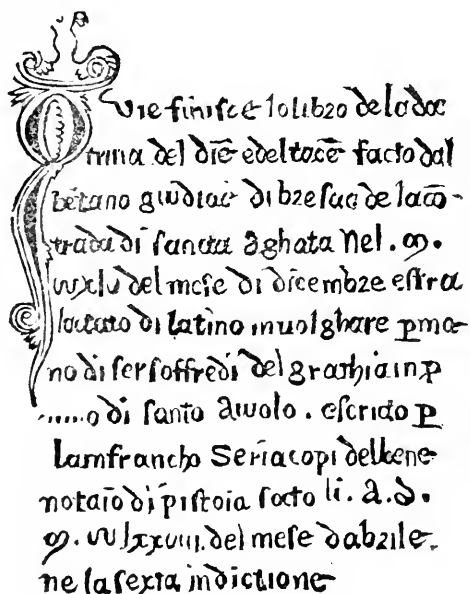 Quie finisce lo libro de la doc
trina del dic̄e e del tac̄e facto dal
bẽtano giudiae di brescia de la cō-
trada di sancta aghata Nel . M .
ccxlv del mese di dicembre estra
lactato di latino in uolghare ꝑ ma-
no di ser soffredi del grathia in ꝑ
di santo aiuolo . e scricto ꝑ
Lamfrancho Seriacopi del bene
notaio di pistoia socto li . A . D .
M . cclxxviii . del mese dabrile .
ne la sexta indictione